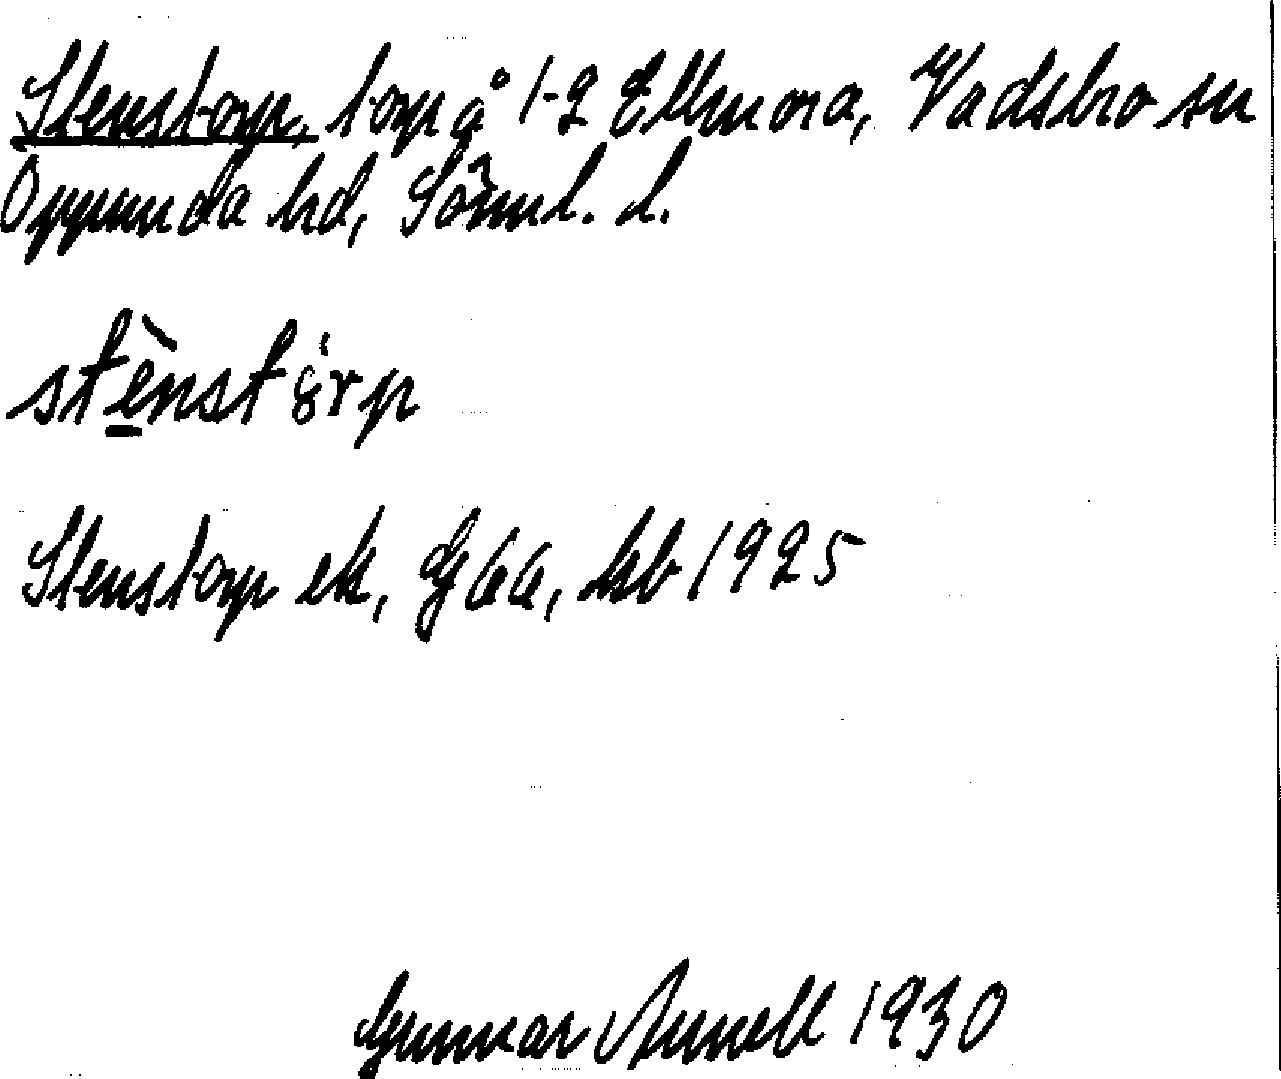 Stenstorp, torp å 1-2 Ellmora, Vadsbro sn
Oppunda hd, Sörml. l.
stènstȣ̍rp
Stenstorp ek, Gj 66, kb 1925
Gunnar Annell 1930